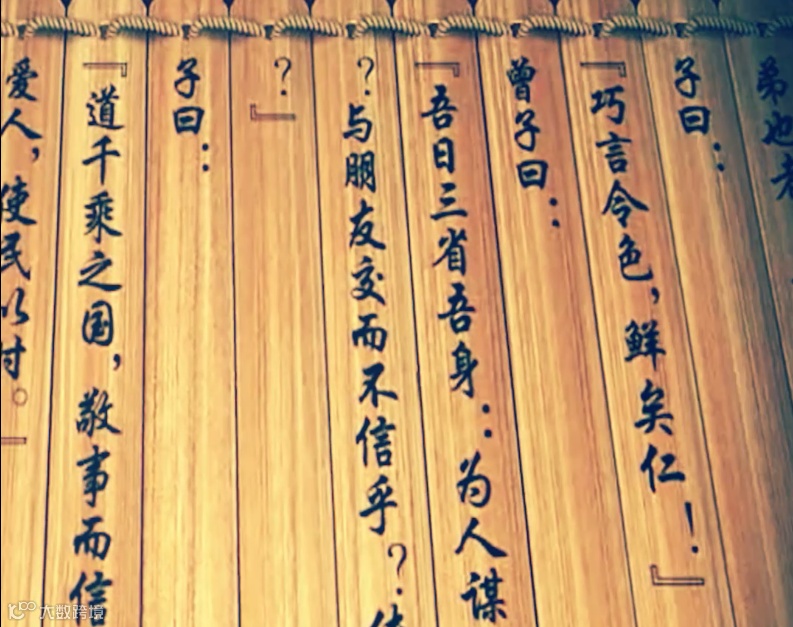 弟也者
子曰：
『巧言令色，鲜矣仁！』
曾子曰：
『吾日三省吾身：为人谋
？与朋友交而不信乎？
？』
子曰：
『道千乘之国，敬事而信
爱人，使民以时。』
大数跨境